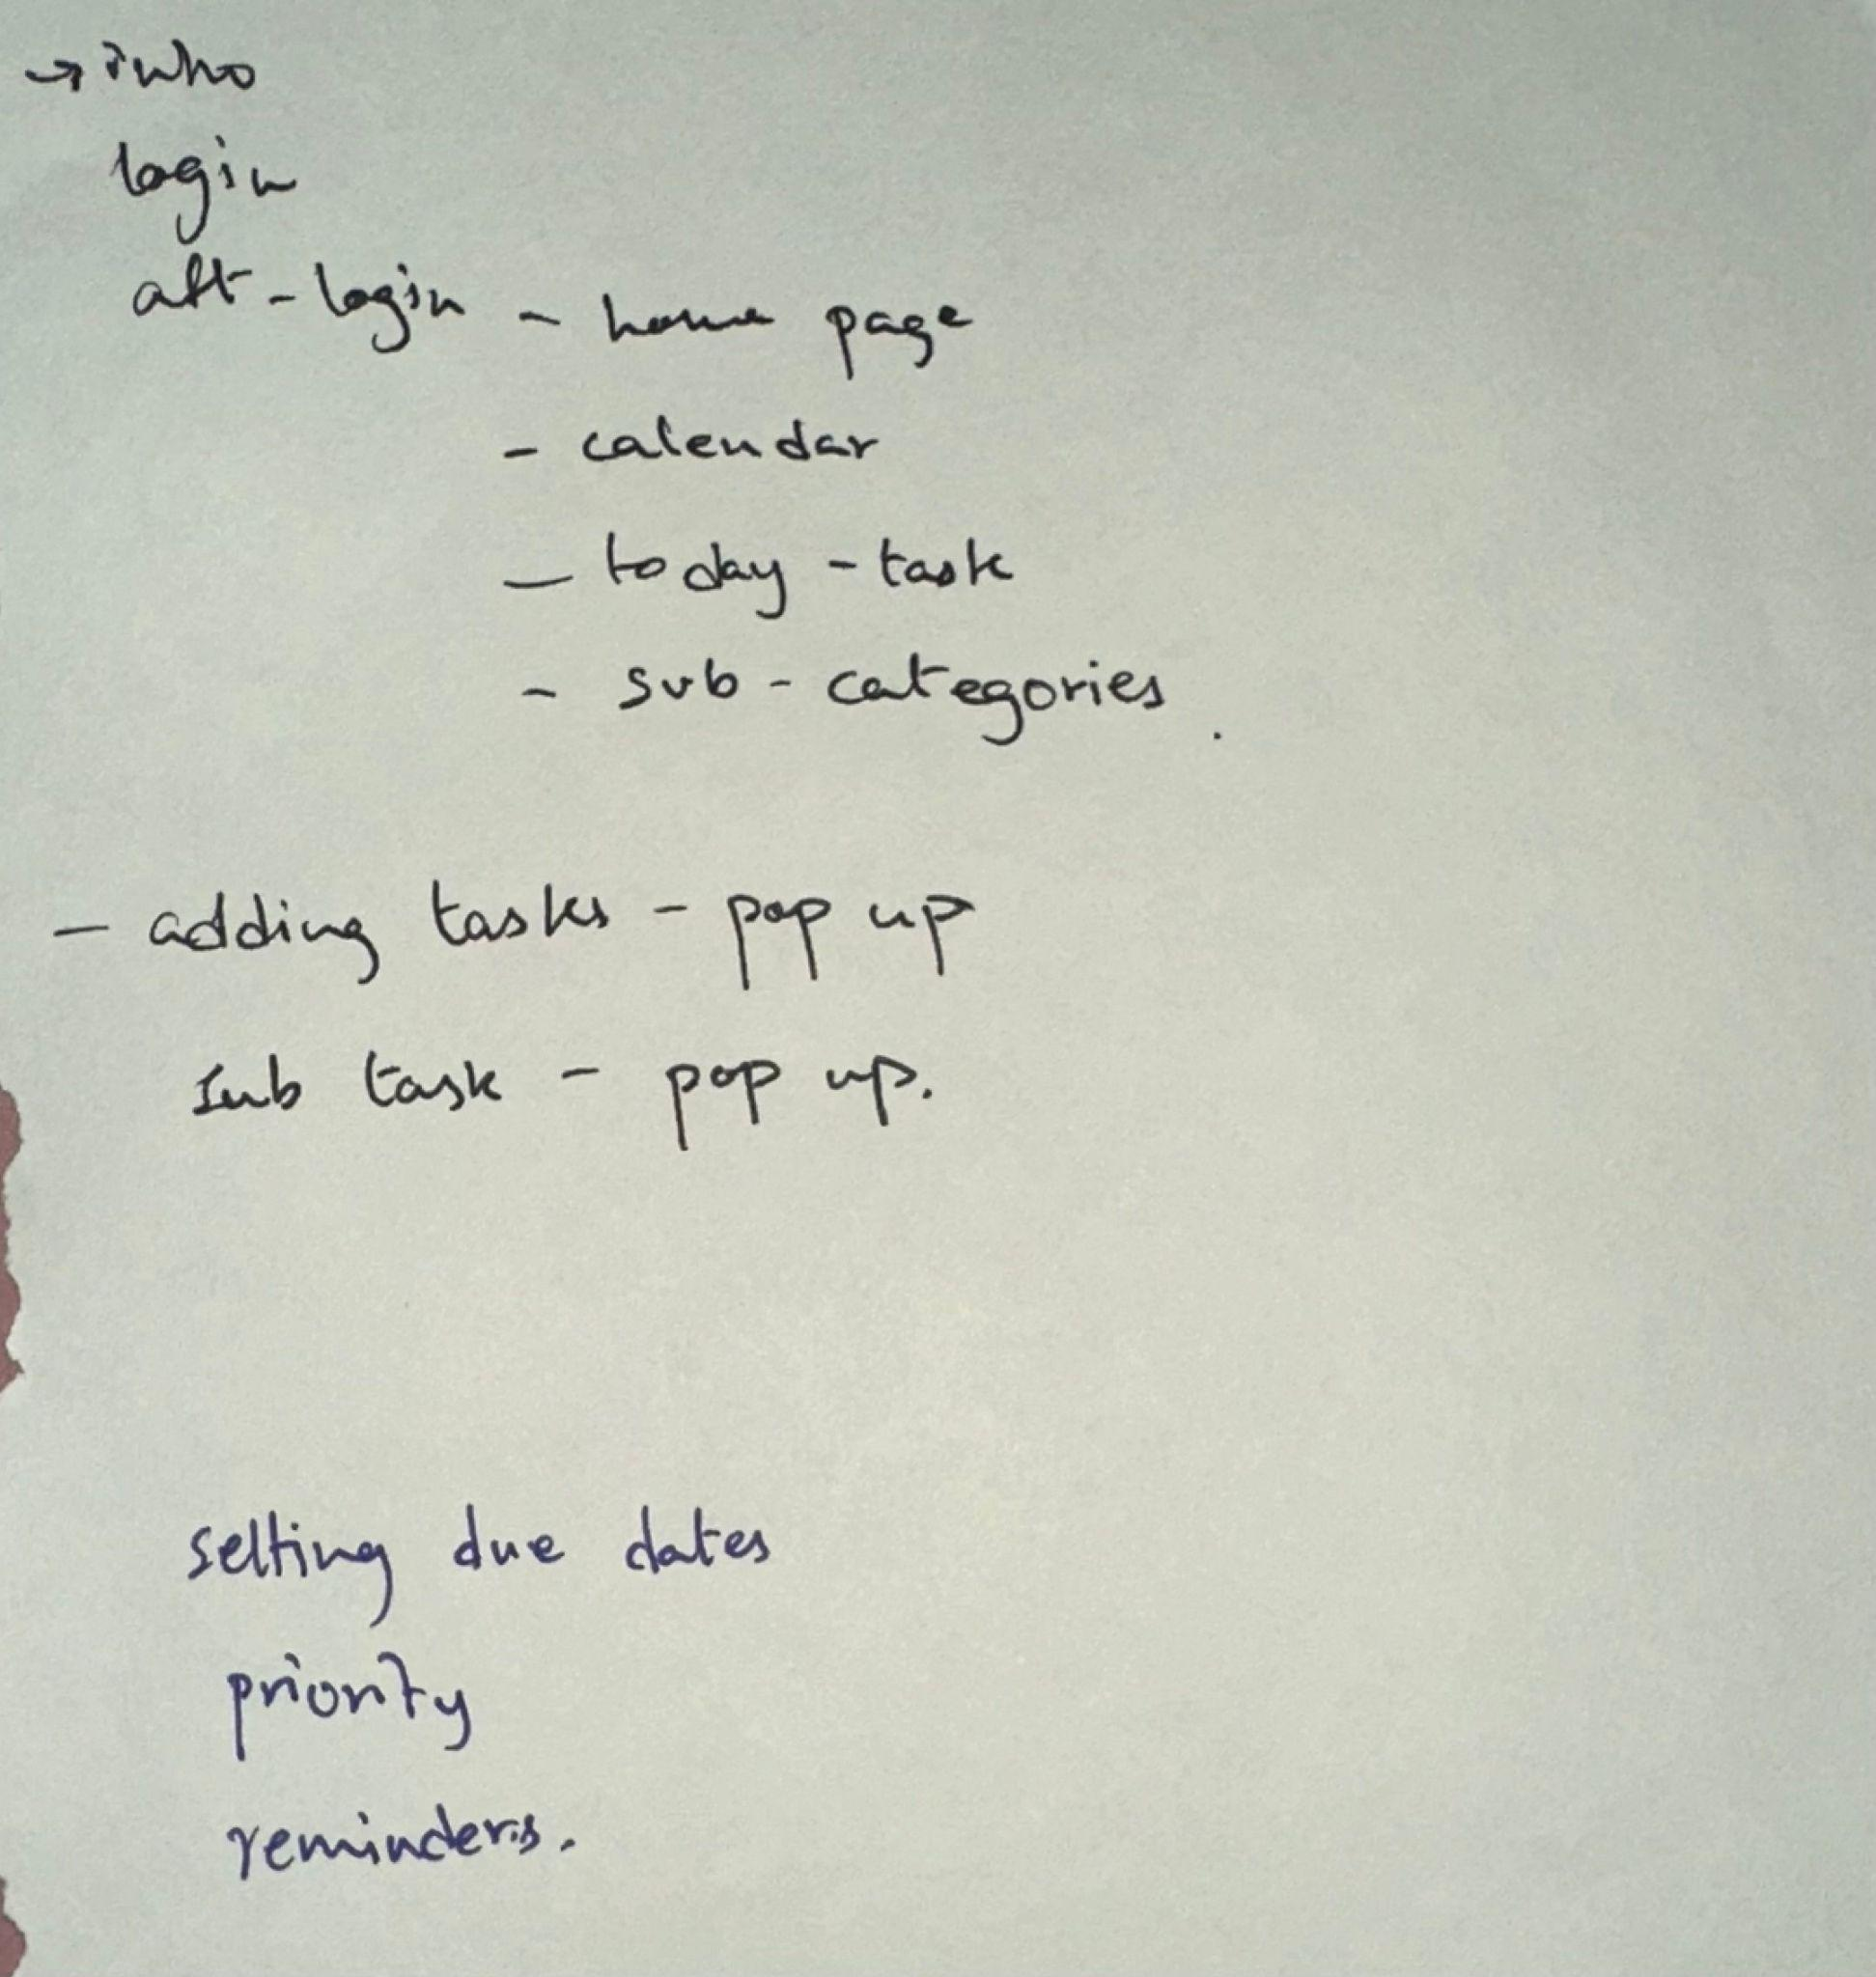 → intro
login
aft - login - home page
- calendar
- today - task
- sub - categories.
- adding tasks - pop up
sub task - pop up.
setting due dates
priority
reminders.